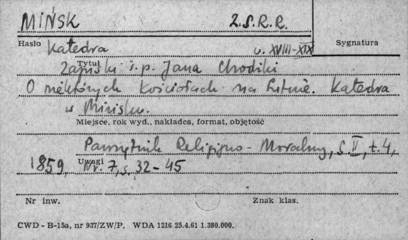 MIŃSK Z.S.R.R.
Hasło Katedra w. XVIII-XIX Sygnatura
Tytuł
Zapiski ś.p. Jana Chodźki
O niektórych kościołach na Litwie. Katedra
w Mińsku.
Miejsce, rok wyd., nakładca, format, objętość
Pamiętnik Religijno-Moralny, S. II, t. 4,
1859, Uwagi Nr. 7, s. 32-45
Nr inw. Znak klas.
CWD - B-15a, nr 937/ZW/P. WDA 1216 25.4.61 1.380.000.